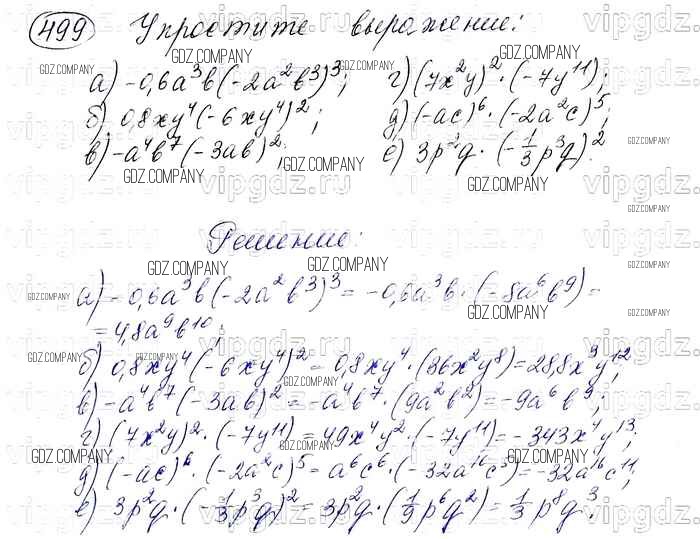 499 Упростите выражение:
а) -0,6a³b(-2a²b³)³; г) (7x²y)²·(-7y¹¹);
б) 0,8xy⁴(-6xy⁴)²; д) (-ac)⁶·(-2a²c)⁵;
в) -a⁴b⁷(-3ab)²; е) 3p²q·(-1/3p³q)².
Решение:
а) -0,6a³b(-2a²b³)³ = -0,6a³b·(-8a⁶b⁹) =
= 4,8a⁹b¹⁰;
б) 0,8xy⁴(-6xy⁴)² = 0,8xy⁴·(36x²y⁸) = 28,8x³y¹²;
в) -a⁴b⁷(-3ab)² = -a⁴b⁷·(9a²b²) = -9a⁶b⁹;
г) (7x²y)²·(-7y¹¹) = 49x⁴y²·(-7y¹¹) = -343x⁴y¹³;
д) (-ac)⁶·(-2a²c)⁵ = a⁶c⁶·(-32a¹⁰c⁵) = -32a¹⁶c¹¹;
е) 3p²q·(-1/3p³q)² = 3p²q·(1/9p⁶q²) = 1/3p⁸q³.